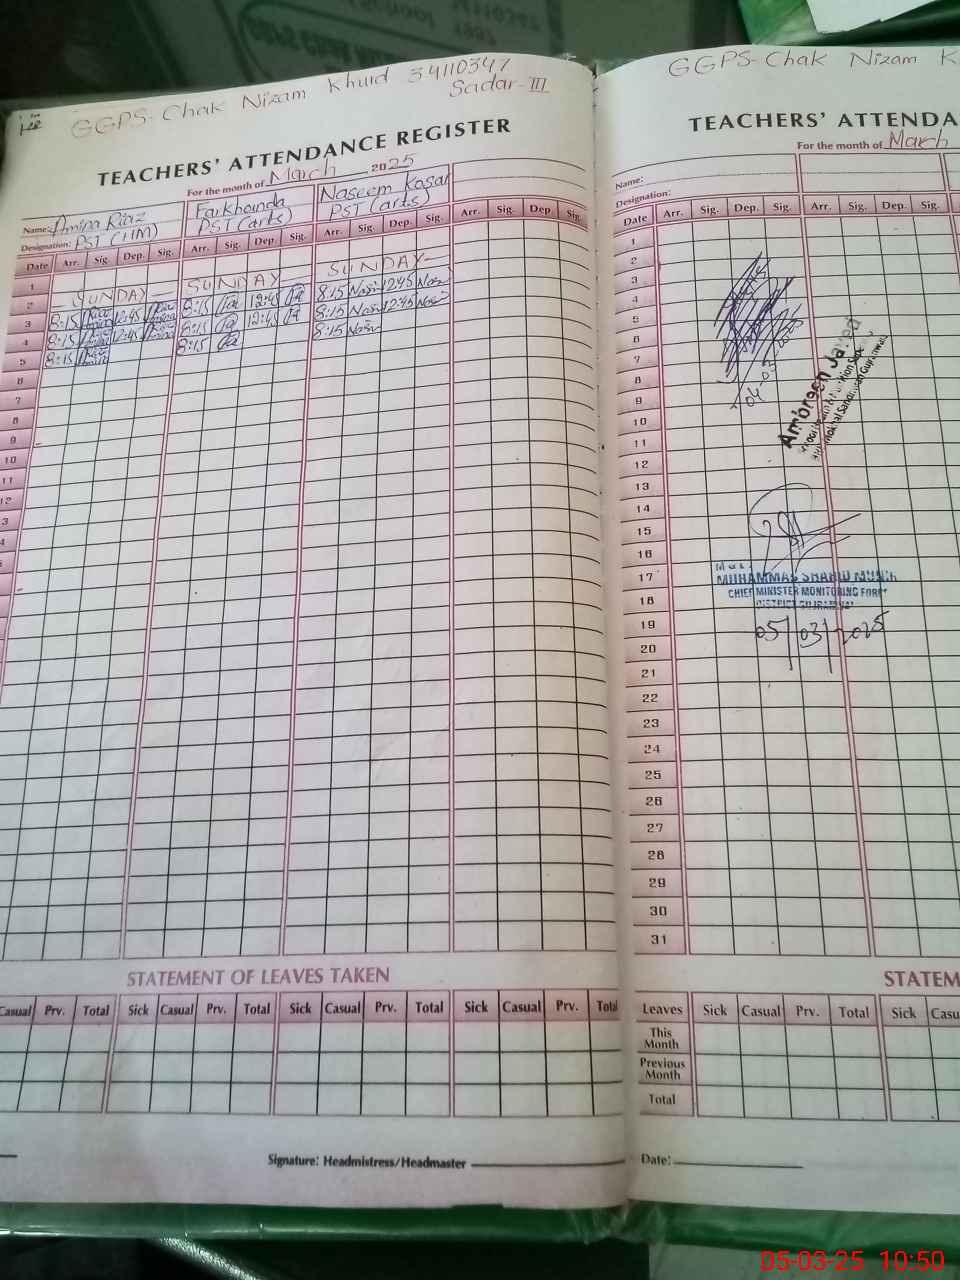 GGPS- Chak Nizam Khurd 34110347
Sadar-III
TEACHERS' ATTENDANCE REGISTER
For the month of March 2025
Name: Amina Riaz Farkhanda Naseem Kosar
Designation: PST (HM) PST (arts) PST (arts)
Date Arr. Sig. Dep. Sig. Arr. Sig. Dep. Sig. Arr. Sig. Dep. Sig. Arr. Sig. Dep. Sig.
1
2 SUNDAY SUNDAY SUNDAY
3 8:15 12:45 8:15 12:45 8:15 12:45
4 8:15 12:45 8:15 12:45 8:15 12:45
5 8:15 8:15 8:15
6
7
8
9
10
11
12
3
4
STATEMENT OF LEAVES TAKEN
Casual Prv. Total Sick Casual Prv. Total Sick Casual Prv. Total Sick Casual Prv. Total
Signature: Headmistress/Headmaster
GGPS- Chak Nizam
TEACHERS' ATTENDA
For the month of March
Name:
Designation:
Date Arr. Sig. Dep. Sig. Arr. Sig. Dep. Sig.
1
2
3
4
5
6
7
8
9
10
11
12
13
14
15
16
17
18
19
20
21
22
23
24
25
26
27
28
29
30
31
Ambreen
MUHAMMAD SHAHID MUNIR
CHIEF MINISTER MONITORING FORCE
05/03/2025
STATEM
Leaves Sick Casual Prv. Total Sick Casu
This Month
Previous Month
Total
Date:
05-03-25 10:50